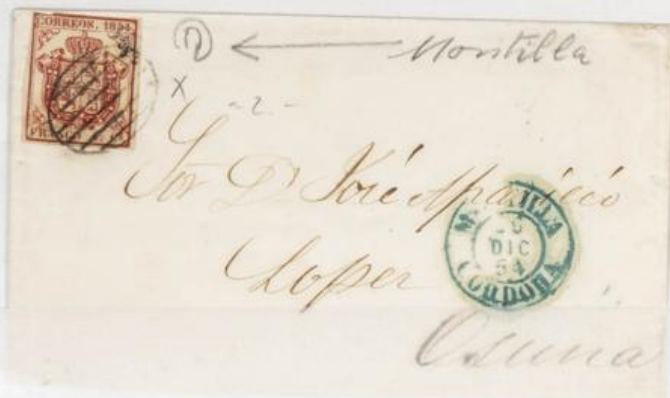 CORREOS. 1854
Montilla
X
-2-
Sor Dn José Aparicio
Lopez
MONTILLA
DIC
54
CORDOBA
Osuna